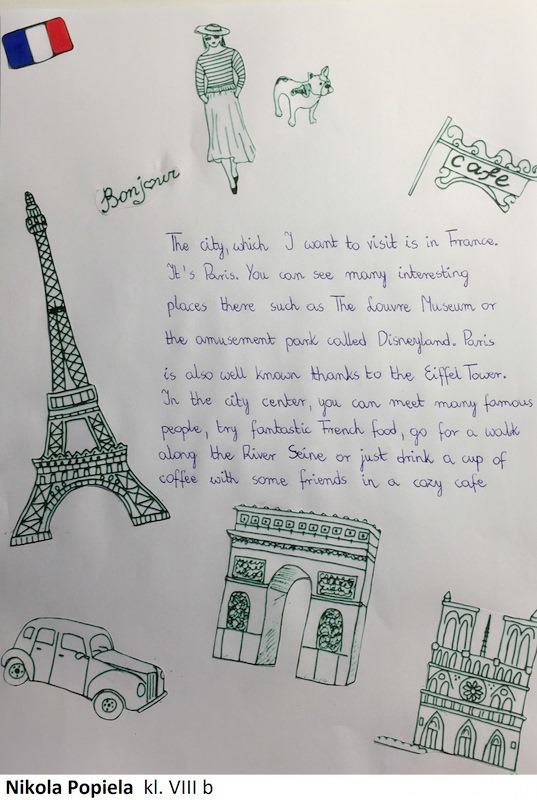 Bonjour
cafe
The city, which I want to visit is in France.
It's Paris. You can see many interesting
places there such as The Louvre Museum or
the amusement park called Disneyland. Paris
is also well known thanks to the Eiffel Tower.
In the city center, you can meet many famous
people, try fantastic French food, go for a walk
along the River Seine or just drink a cup of
coffee with some friends in a cozy cafe
Nikola Popiela kl. VIII b